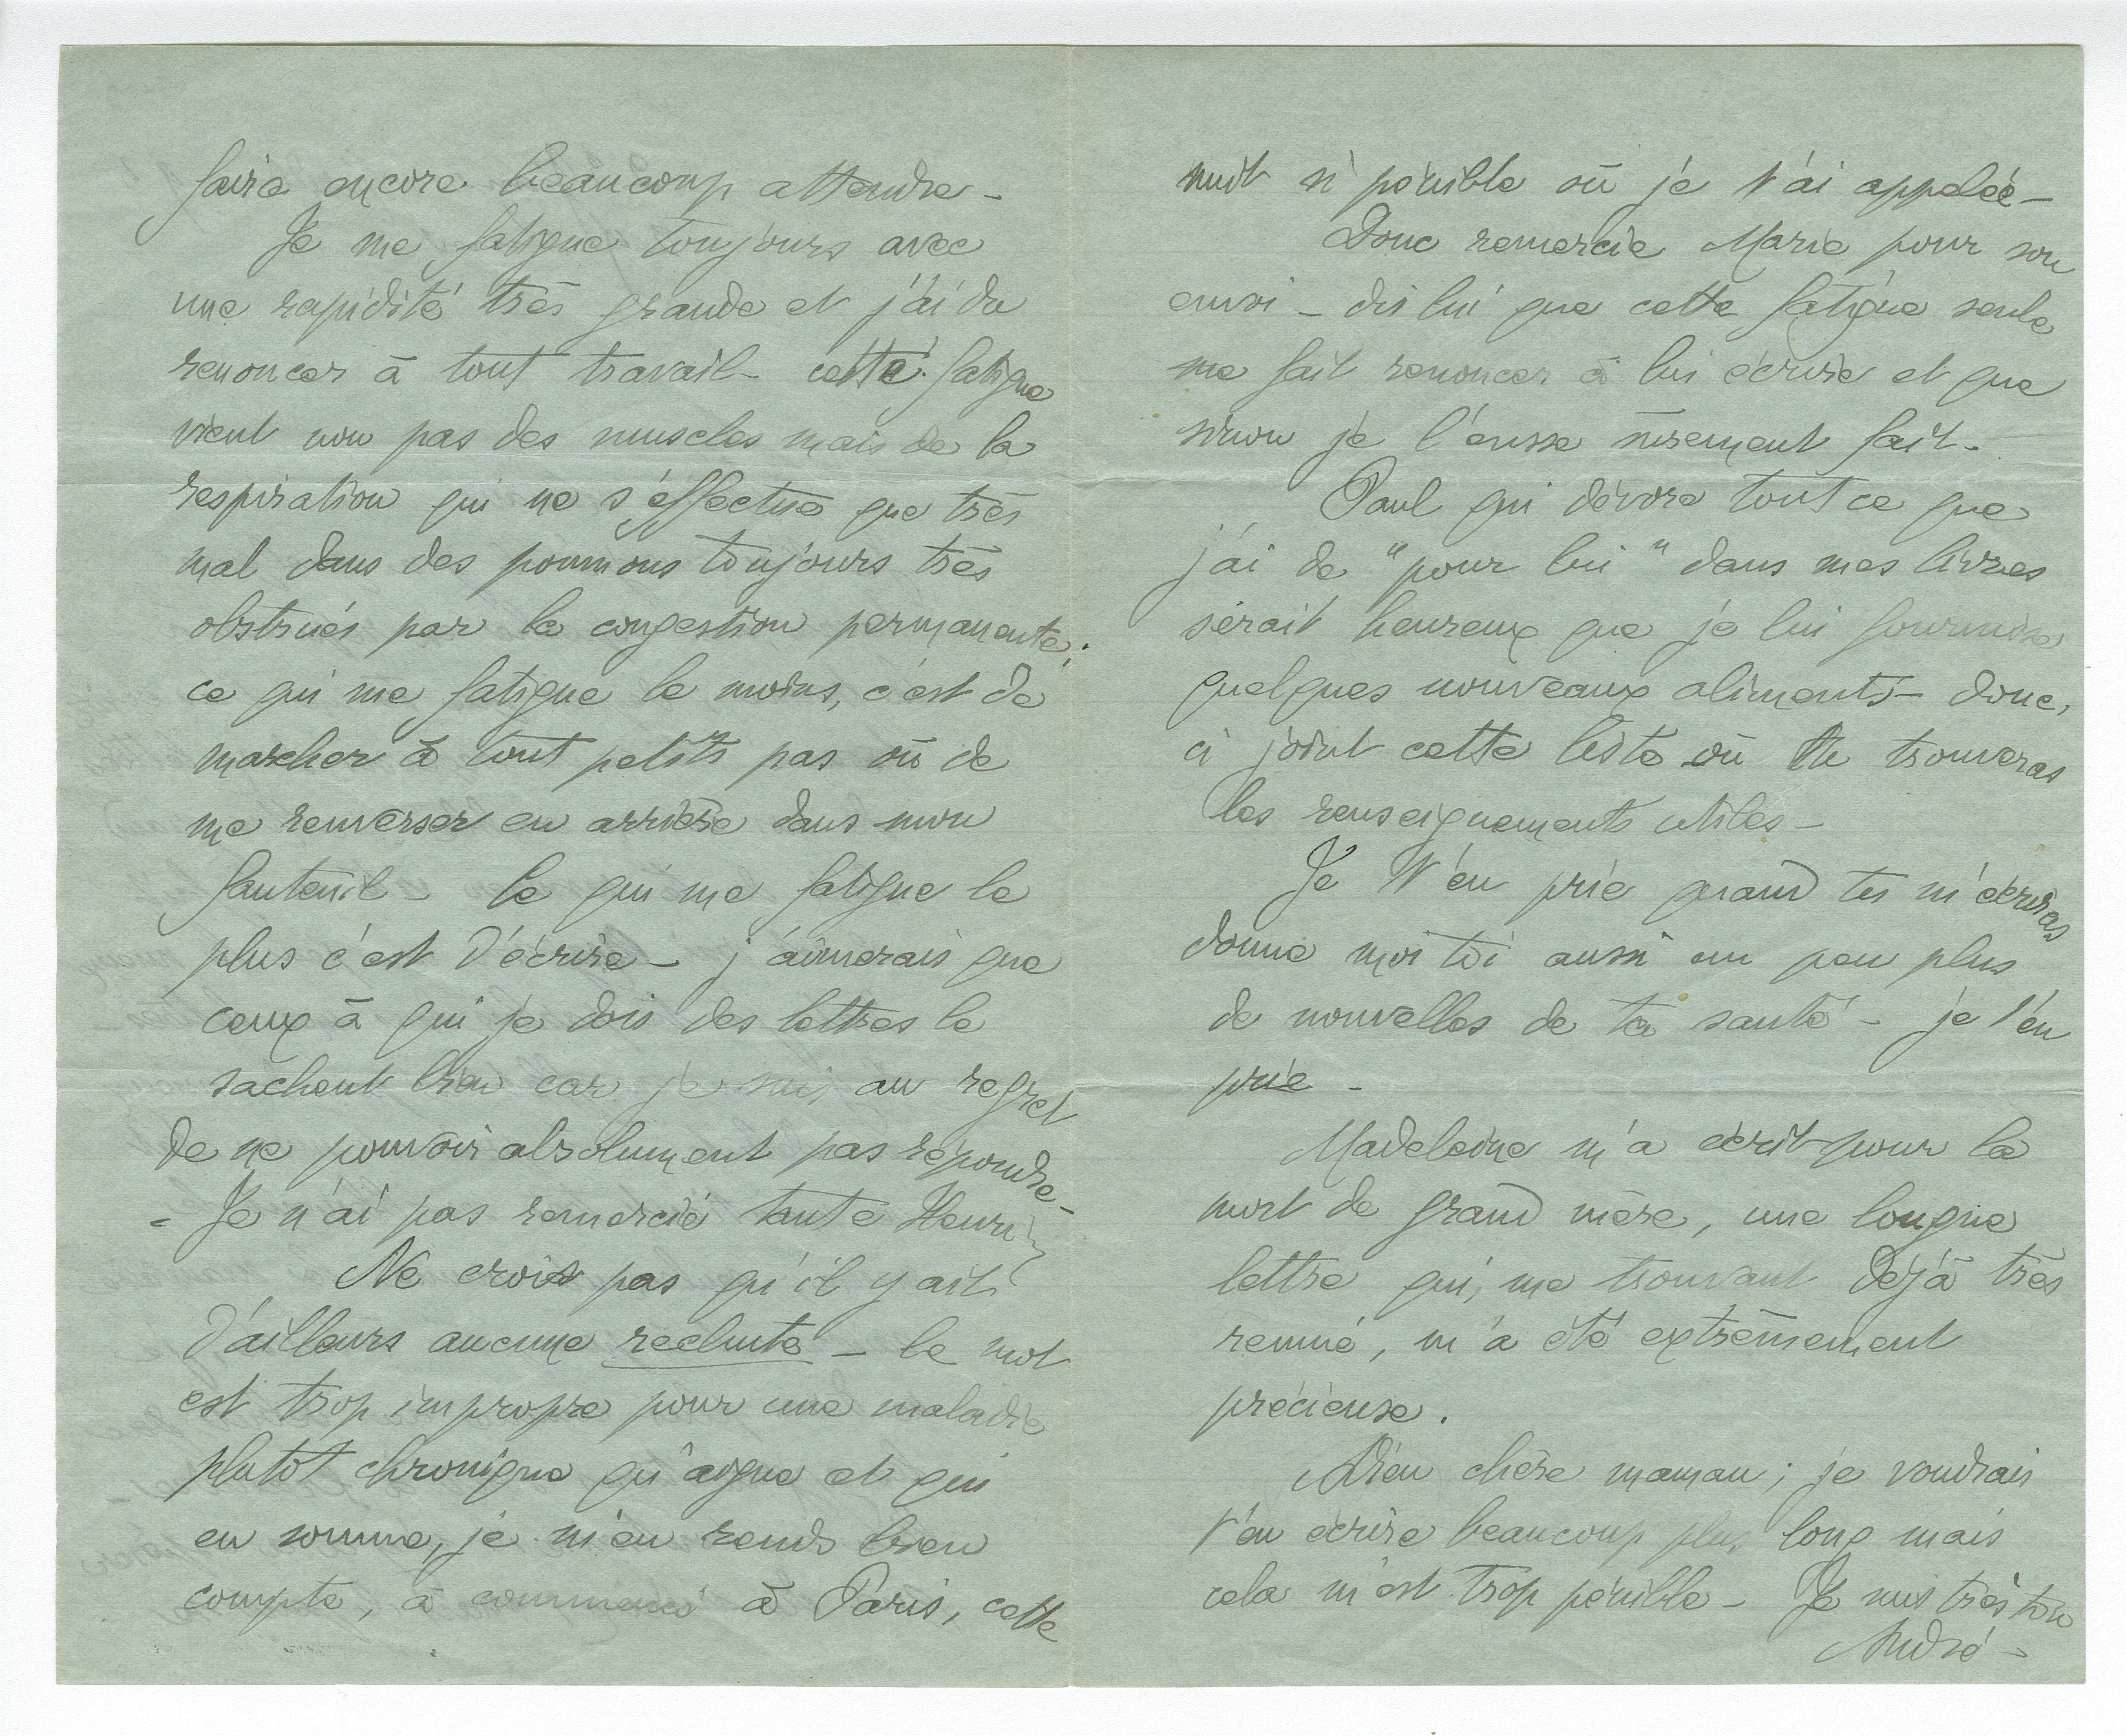 faire encore beaucoup attendre –
Je me fatigue toujours avec
une rapidité très grande et j'ai du
renoncer à tout travail – cette fatigue
vient non pas des muscles mais de la
respiration qui ne s'effectue que très
mal dans des poumons toujours très
obstrués par la congestion permanente.
ce qui me fatigue le moins, c'est de
marcher à tout petits pas où de
me renverser en arrière dans mon
fauteuil – Ce qui me fatigue le
plus c'est d'écrire – j'aimerais que
ceux à qui je dois des lettres le
sachent bien car je suis au regret
de ne pouvoir absolument pas répondre –
– Je n'ai pas remercié tante Henri
Ne crois pas qu'il y ait
d'ailleurs aucune rechute – le mot
est trop impropre pour une maladie
plutôt chronique qu'aigue et qui
en somme, je m'en rends bien
compte, a commencé à Paris, cette
nuit si pénible où je t'ai appelée –
Donc remercie Marie pour son
envoi – dis lui que cette fatigue seule
me fait renoncer à lui écrire et que
sinon je l'eusse sûrement fait –
Paul qui dévore tout ce que
j'ai de "pour lui" dans mes livres
serait heureux que je lui fournisse
quelques nouveaux aliments – donc,
ci joint cette liste où tu trouveras
les renseignements utiles –
Je t'en prie quand tu m'écriras
donne moi toi aussi un peu plus
de nouvelles de ta santé – je t'en
prie –
Madeleine m'a écrit pour la
mort de grand mère, une longue
lettre qui, me trouvant déjà très
remué, m'a été extrêmement
précieuse.
Adieu chère maman ; je voudrais
t'en écrire beaucoup plus long mais
cela m'est trop pénible – Je suis très ton
André –